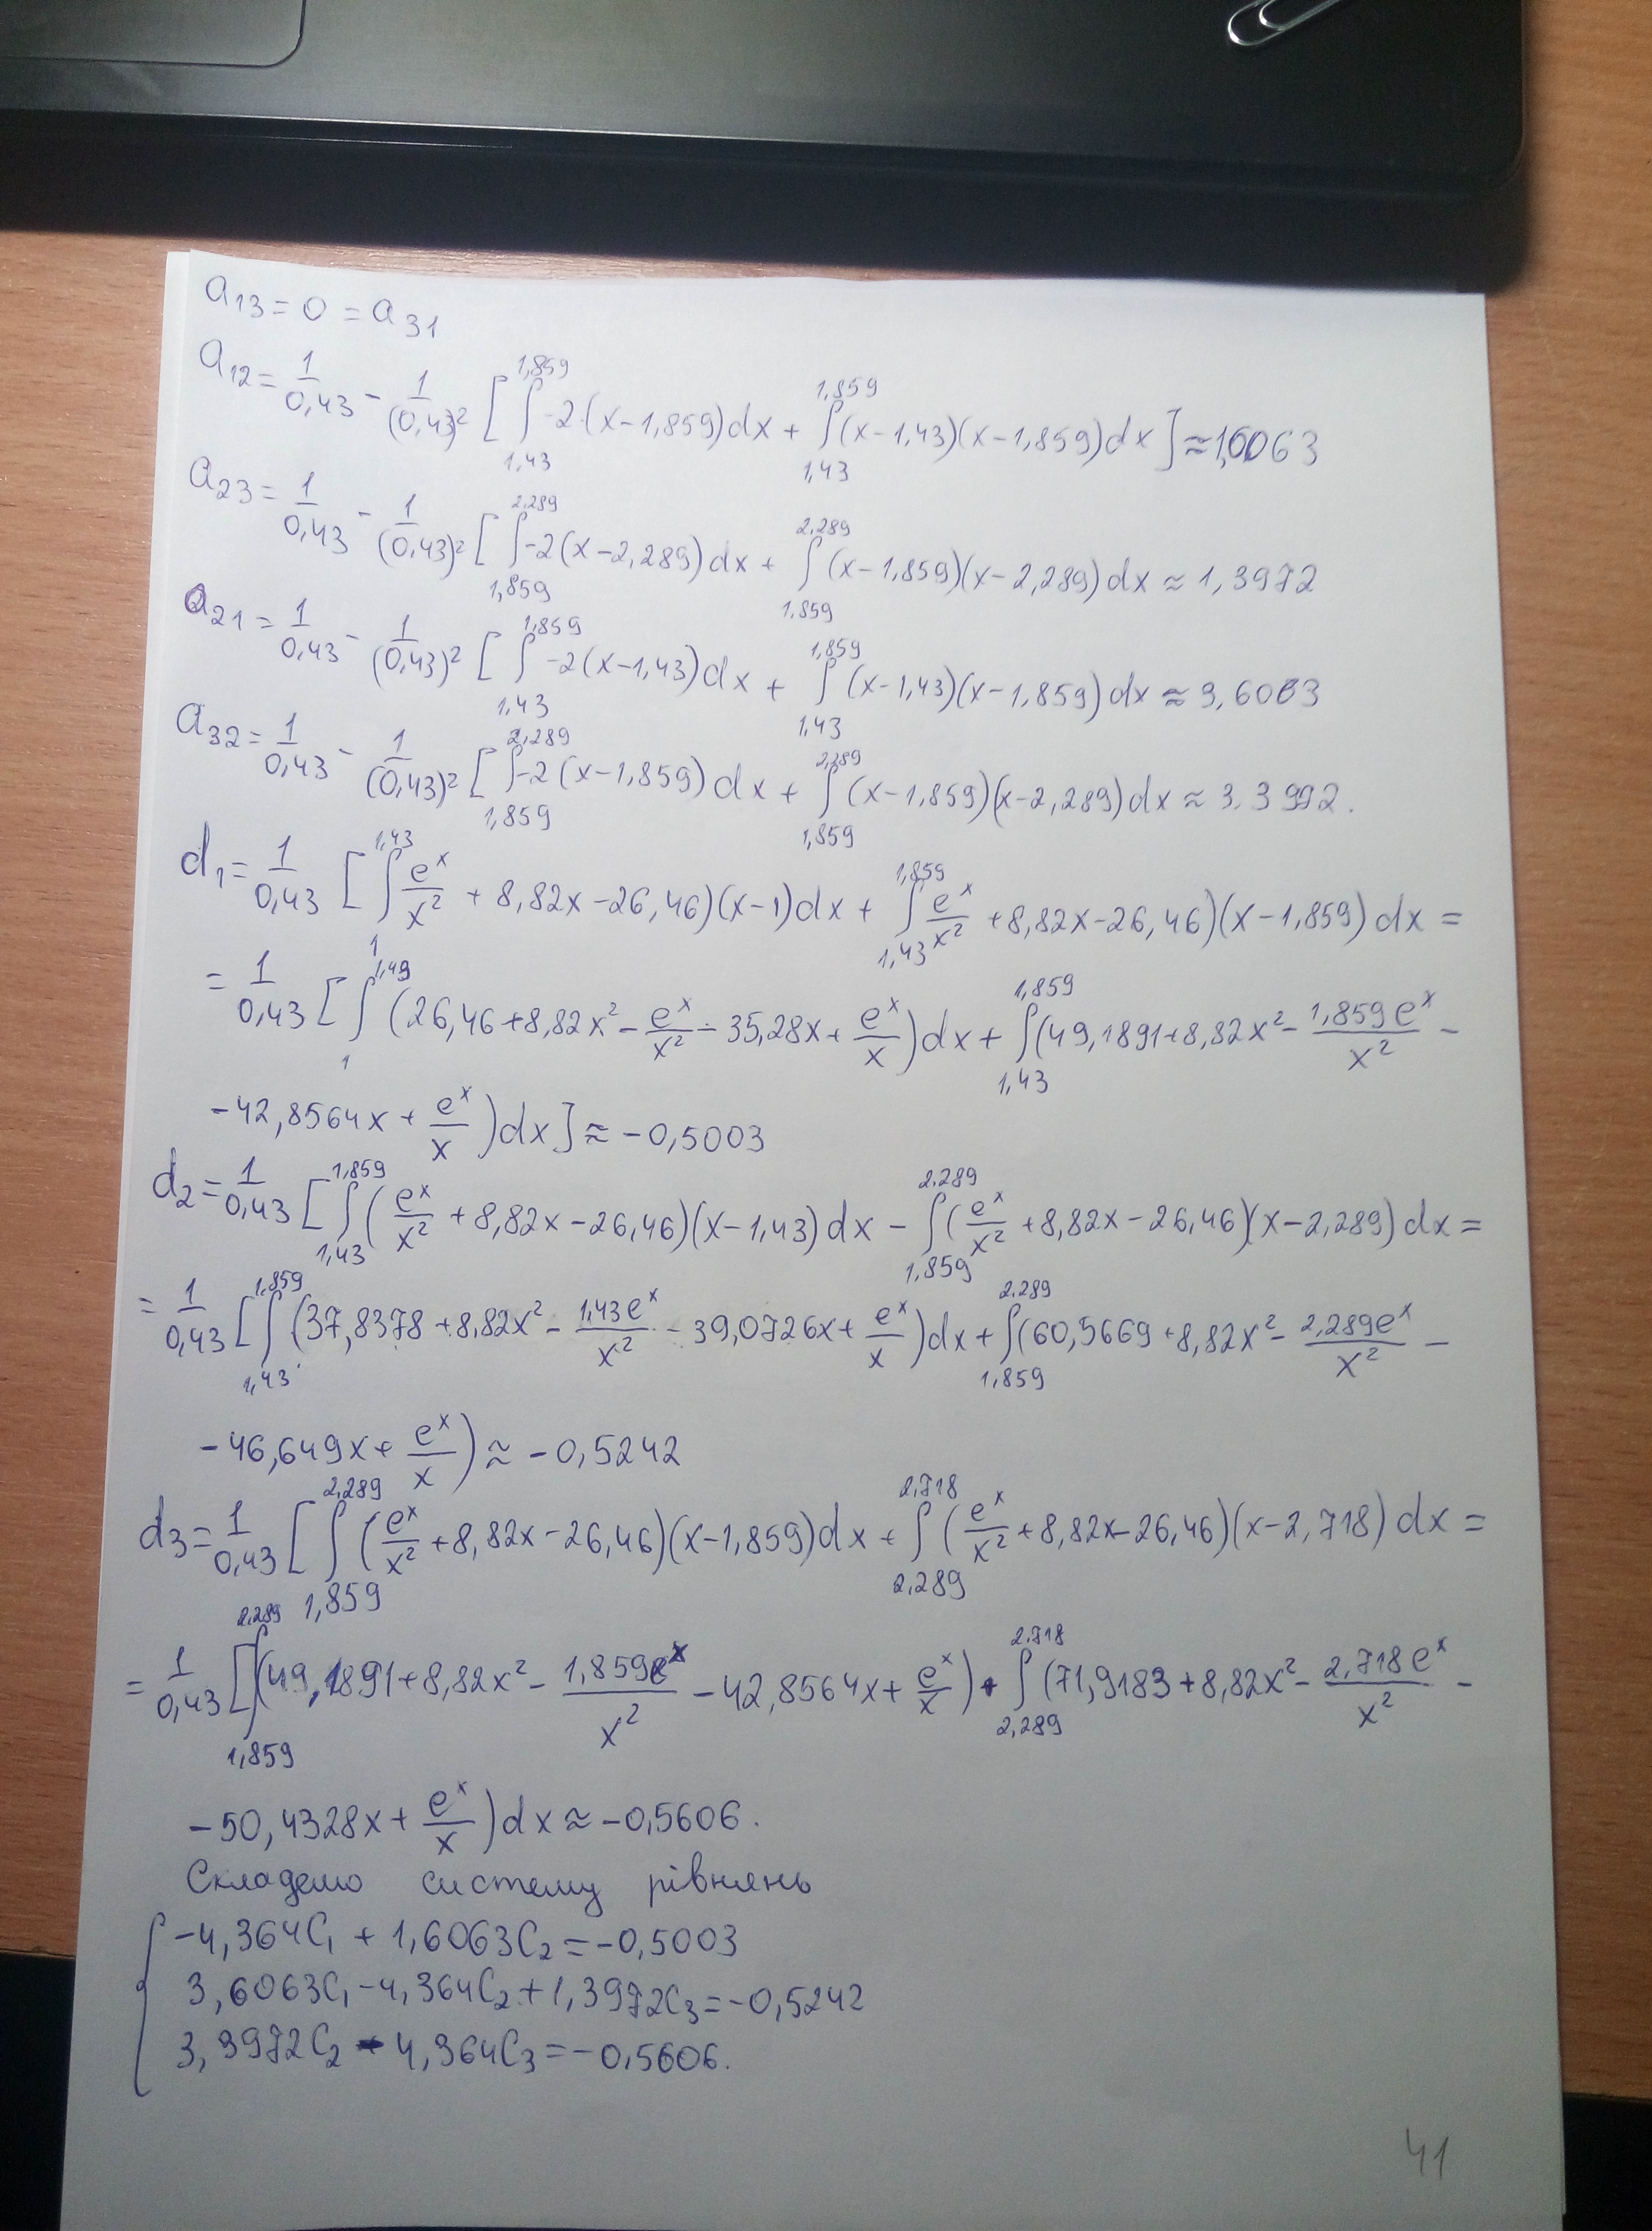 a₁₃ = 0 = a₃₁
a₁₂ = 1/0,43 - 1/(0,43)² [ ∫_{1,43}^{1,859} -2(x-1,859)dx + ∫_{1,43}^{1,859} (x-1,43)(x-1,859)dx ] ≈ 1,6063
a₂₃ = 1/0,43 - 1/(0,43)² [ ∫_{1,859}^{2,289} -2(x-2,289)dx + ∫_{1,859}^{2,289} (x-1,859)(x-2,289)dx ≈ 1,3972
a₂₁ = 1/0,43 - 1/(0,43)² [ ∫_{1,43}^{1,859} -2(x-1,43)dx + ∫_{1,43}^{1,859} (x-1,43)(x-1,859)dx ≈ 3,6063
a₃₂ = 1/0,43 - 1/(0,43)² [ ∫_{1,859}^{2,289} -2(x-1,859)dx + ∫_{1,859}^{2,289} (x-1,859)(x-2,289)dx ≈ 3.3992.
d₁ = 1/0,43 [ ∫_{1}^{1,43} e^x/x² + 8,82x-26,46)(x-1)dx + ∫_{1,43}^{1,859} e^x/x² + 8,82x-26,46)(x-1,859)dx =
= 1/0,43 [ ∫_{1}^{1,49} (26,46+8,82x² - e^x/x² - 35,28x + e^x/x)dx + ∫_{1,43}^{1,859} (49,1891+8,82x² - 1,859e^x/x² -
-42,8564x + e^x/x)dx] ≈ -0,5003
d₂ = 1/0,43 [ ∫_{1,43}^{1,859} (e^x/x² + 8,82x-26,46)(x-1,43)dx - ∫_{1,859}^{2.289} (e^x/x² + 8,82x-26,46)(x-2,289)dx =
= 1/0,43 [ ∫_{1,43}^{1,859} (37,8378+8,82x² - 1,43e^x/x² - 39,0726x + e^x/x)dx + ∫_{1,859}^{2.289} (60,5669+8,82x² - 2,289e^x/x² -
-46,649x + e^x/x) ≈ -0,5242
d₃ = 1/0,43 [ ∫_{1,859}^{2,289} (e^x/x² + 8,82x-26,46)(x-1,859)dx + ∫_{2,289}^{2,718} (e^x/x² + 8,82x-26,46)(x-2,718)dx =
= 1/0,43 [ ∫_{1,859}^{2,289} (49,1891+8,82x² - 1,859e^x/x² - 42,8564x + e^x/x) + ∫_{2,289}^{2,718} (71,9183+8,82x² - 2,718e^x/x² -
-50,4328x + e^x/x)dx ≈ -0,5606.
Складемо систему рівнянь
{ -4,364C₁ + 1,6063C₂ = -0,5003
3,6063C₁ - 4,364C₂ + 1,3972C₃ = -0,5242
3,3972C₂ - 4,364C₃ = -0,5606.
41